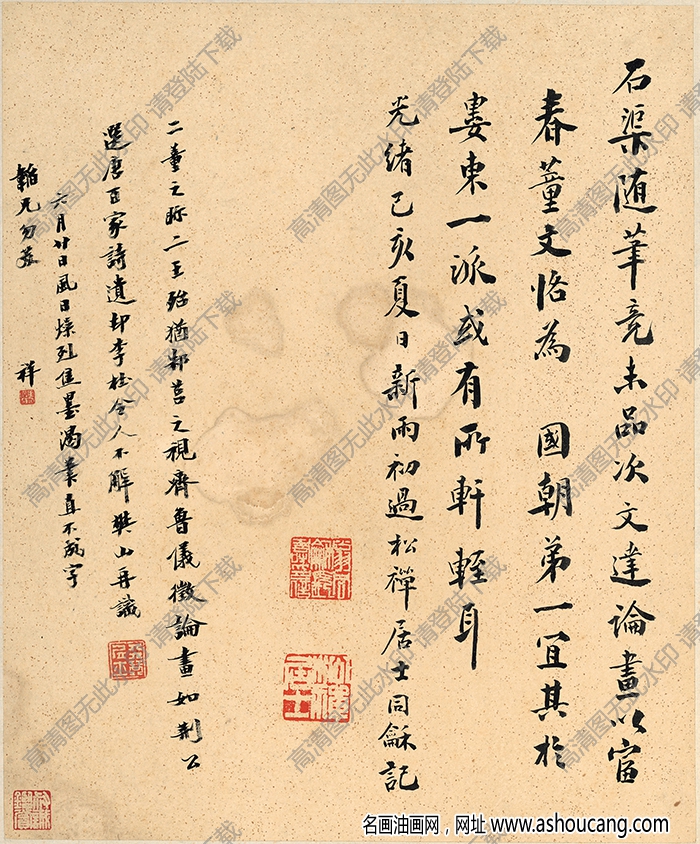 石渠随筆竟未品次文達論畫以富
春董文恪為 國朝弟一宜其於
婁東一派或有所軒輊耳
光緒己亥夏日新雨初過松禪居士同龢記
二董之眎二王殆猶邾莒之視齊魯儀徵論畫如荆公
選唐百家詩遺却李杜令人不解樊山再識
六月廿日風日燥烈焦墨渴筆直不成字
韜兄勿哀
祥
松禪居士
高清图无此水印 请登陆下载
名画油画网，网址 www.ashoucang.com